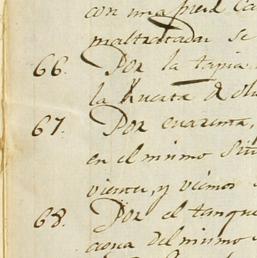 con una pied ca
maltratada se
66. Por la tapia
la huerta de ol
67. Por cuarenta,
en el mismo Siti
viento, y vimos
68. Por el tanque
agua del mismo